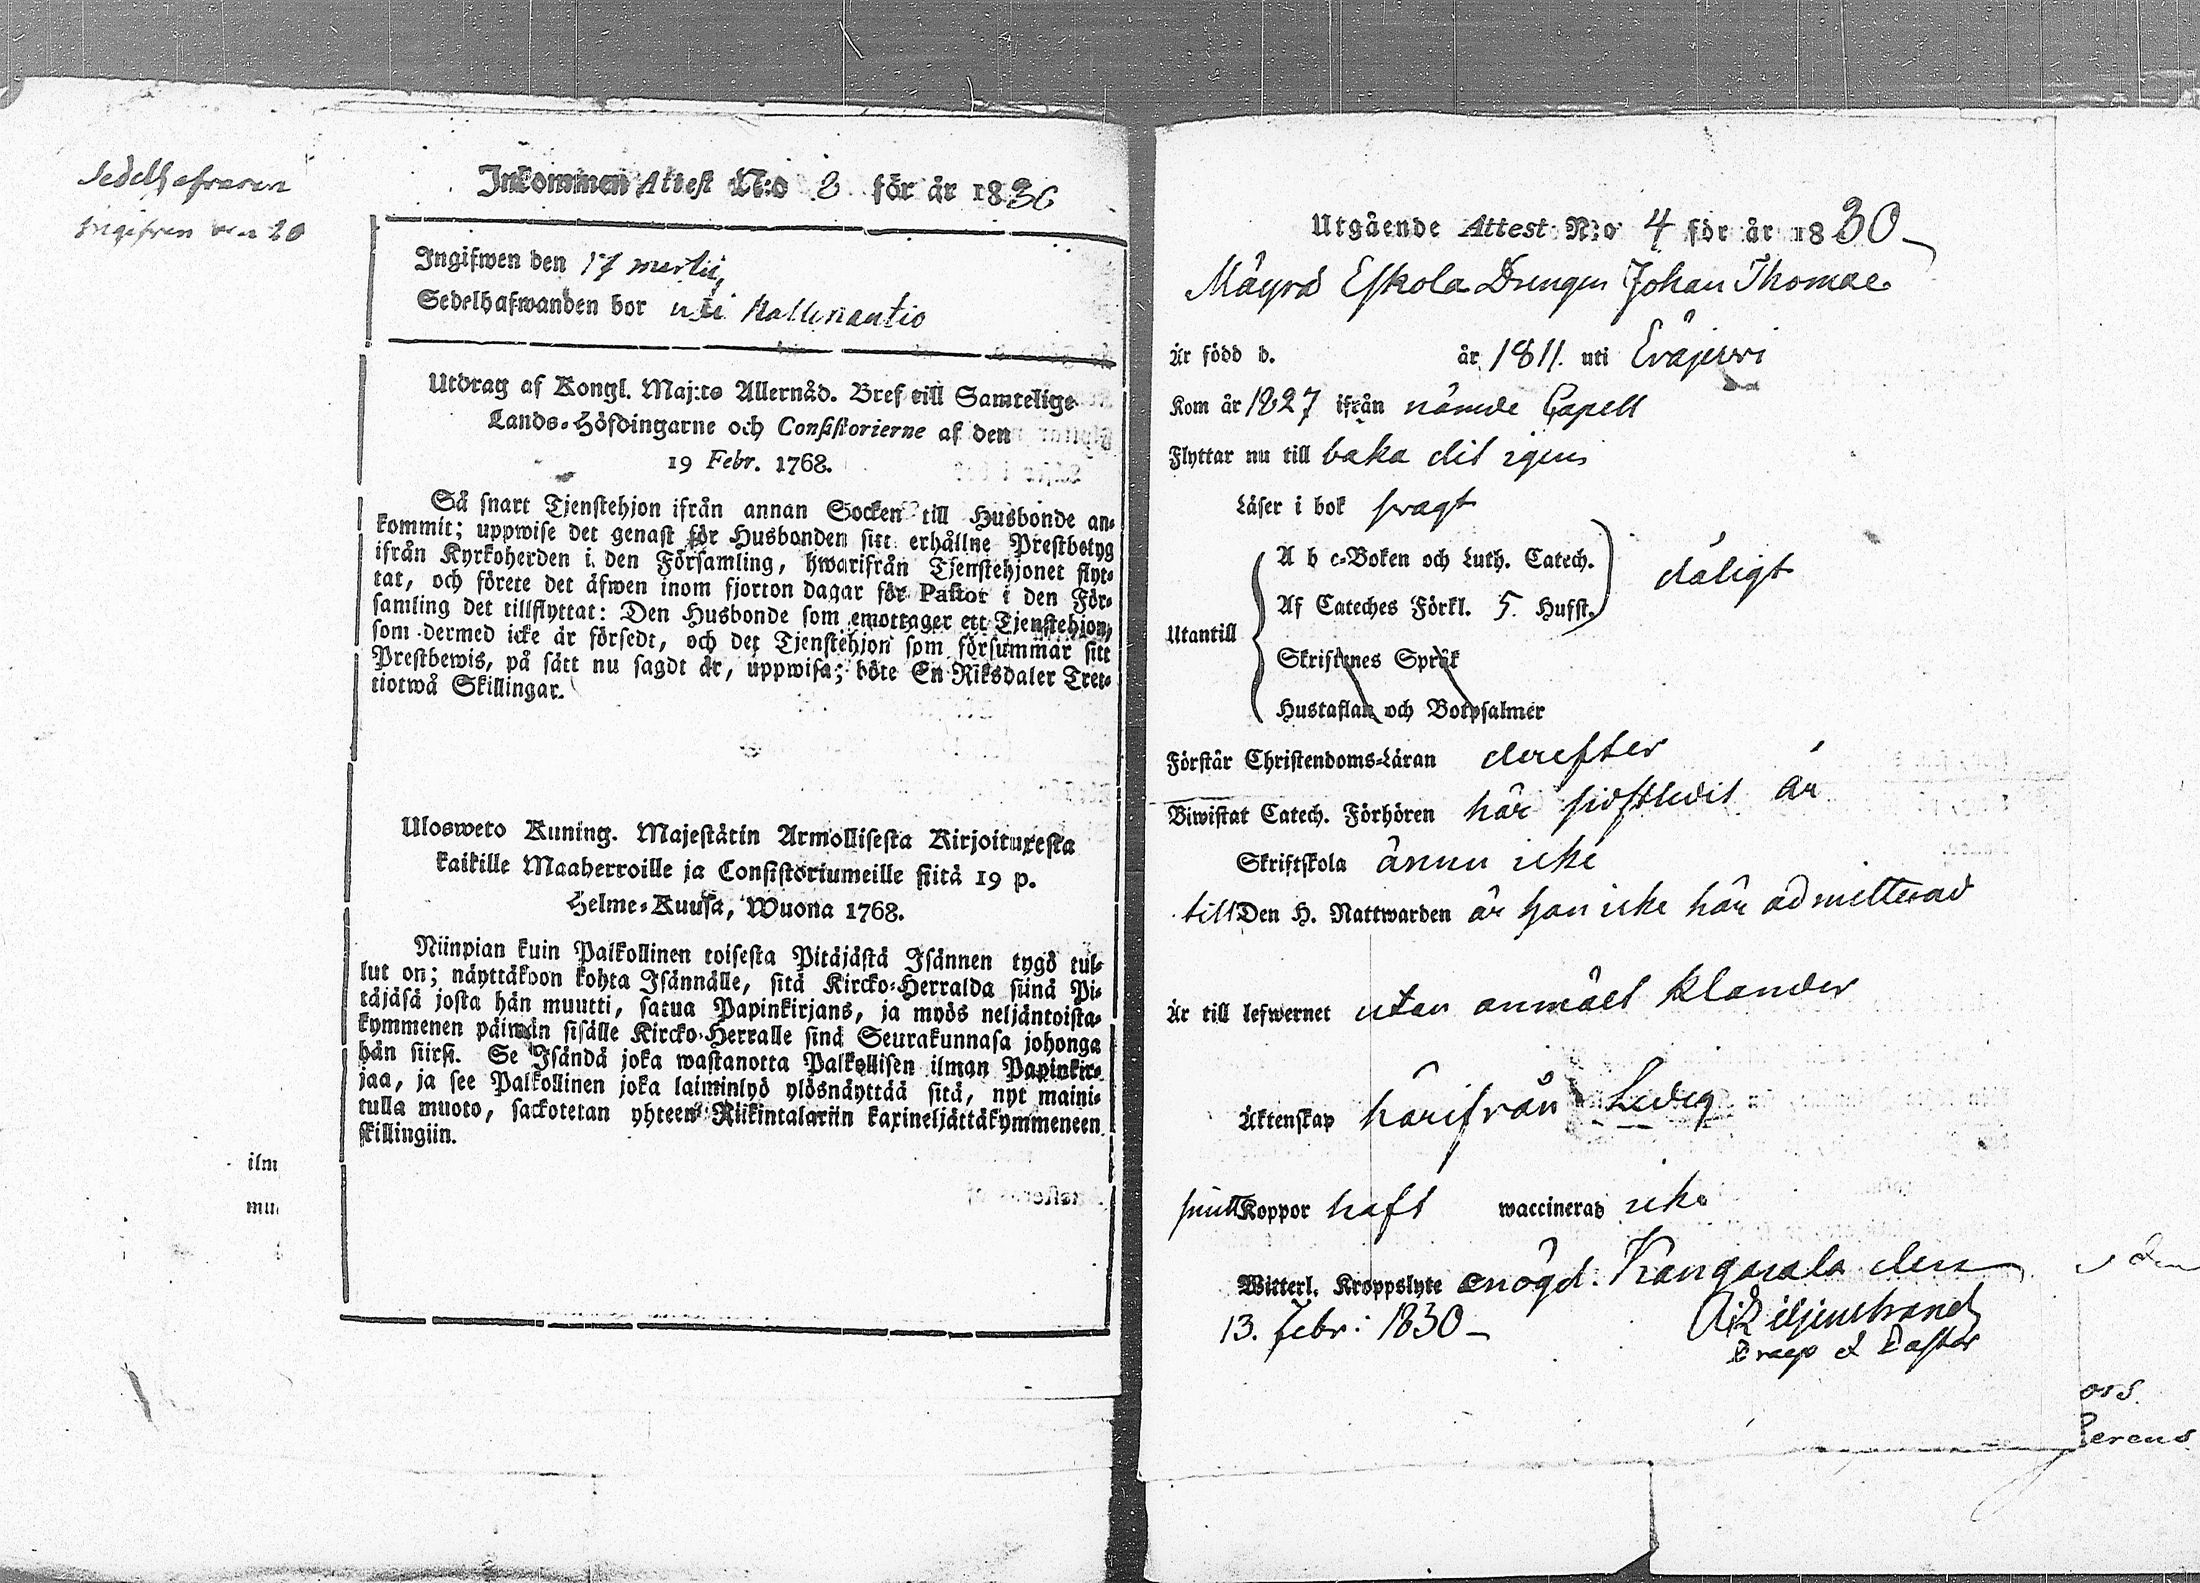 Sedelhafvaren
Ingifven den 20
Inkommen Attest N:o 2 för år 1830
Ingifwen den 17 martii,
Sedelhafwanden bor uti Kallenautio
Utdrag af Kongl. Maj:ts Allernåd. Bref till Samtelige
Lands-Höfdingarne och Consistorierne af den
19 Febr. 1768.
Så snart Tjenstehjon ifrån annan Socken till Husbonde an-
kommit; uppwise det genast för Husbonden sitt erhållne Prestbetyg
ifrån Kyrkoherden i den Församling, hwarifrån Tjenstehjonet flyt-
tat, och förete det äfwen inom fjorton dagar för Pastor i den För-
samling det tillflyttat: Den Husbonde som emottager ett Tjenstehjon,
som dermed icke är försedt, och det Tjenstehjon som försummar sitt
Prestbewis, på sätt nu sagdt är, uppwisa; böte En Riksdaler Tret-
tiotwå Skillingar.
Ulosweto Kuning. Majestätin Armollisesta Kirjoituxesta
kaikille Maaherroille ja Consistoriumeille siitä 19 p.
Helme-Kuusa, Wuona 1768.
Niinpian kuin Palkollinen toisesta Pitäjästä Isännen tygö tul-
lut on; näyttäkoon kohta Isännälle, sitä Kircko-Herralda siinä Pi-
täjäsä josta hän muutti, saatua Papinkirjans, ja myös neljäntoista-
kymmenen päiwän sisälle Kircko-Herralle siinä Seurakunnasa johonga
hän siirsi. Se Isändä joka wastanotta Palkollisen ilman Papinkir-
jaa, ja see Palkollinen joka laiminlyö ylösnäyttää sitä, nyt maini-
tulla muoto, sackotetan yhteen Riikintalariin kaxineljättäkymmeneen
skillingiin.
ilm
mu
Utgående Attest N:o 4 för år 1830
Mäyrä Eskola Drengen Johan Thomae
Är född d. år 1811. uti Eräjerwi
Kom år 1827 ifrån nämde Capell
Flyttar nu till baka dit igen
Läser i bok swagt
A b c-Boken och Luth. Catech.
Af Cateches Förkl. 5. Hufst. dåligt
Utantill
Skriftenes Språk
Hustaflan och Botpsalmer
Förstår Christendoms-Läran derefter
Biwistat Catech. Förhören här sidstledit år
Skriftskola ännu icke
till Den H. Nattwarden är han icke här admitterad
Är till lefwernet utan anmält klander
Äktenskap härifrån Ledig
små Koppor haft waccinerad icke
Witterl. Kroppslyte enögd. Kangasala den
13. Febr: 1830
Liljenstrand
Praep & Pastor
den
ors.